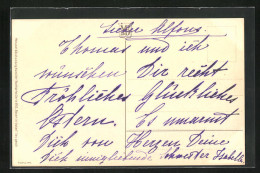 Lieber Alfons.
Thomas und ich
wünschen Dir recht
Fröhliches Glückliches
Ostern. Es umarmt
Dich von Herzen Deine
Dich innigliebende Schwester Isabella